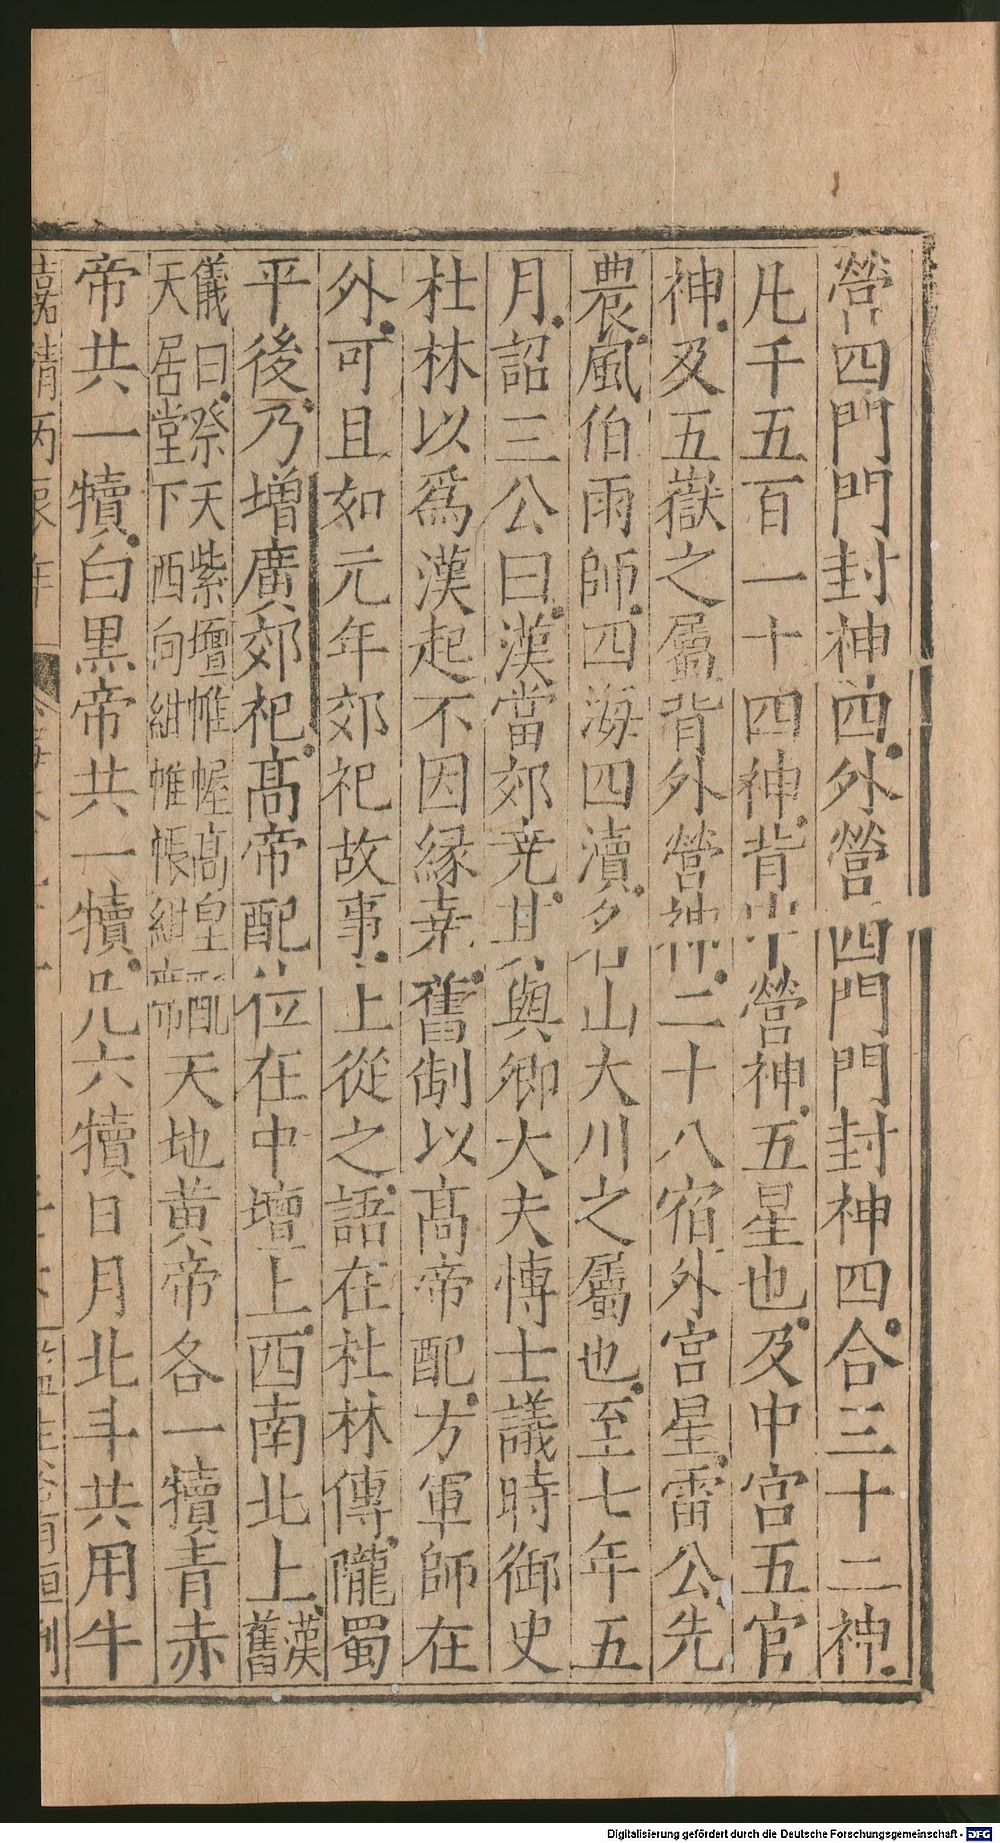 營四門門封神四外營四門門封神四合三十二神
凡千五百一十四神背中營神五星也及中宮五官
神及五嶽之屬背外營神二十八宿外宮星雷公先
農風伯雨師四海四瀆名山大川之屬也至七年五
月詔三公曰漢當郊堯其與卿大夫博士議時御史
杜林以爲漢起不因緣堯舊制以髙帝配方軍師在
外可且如元年郊祀故事上從之語在杜林傳隴蜀
平後乃增廣郊祀髙帝配位在中壇上西南北上漢舊
儀曰祭天紫壇帷幄髙皇配天居堂下西向紺帷帳紺席天地黃帝各一犢青赤
帝共一犢白黑帝共一犢凡六犢日月北斗共用牛
嘉靖丙 年
Digitalisierung gefördert durch die Deutsche Forschungsgemeinschaft - DFG